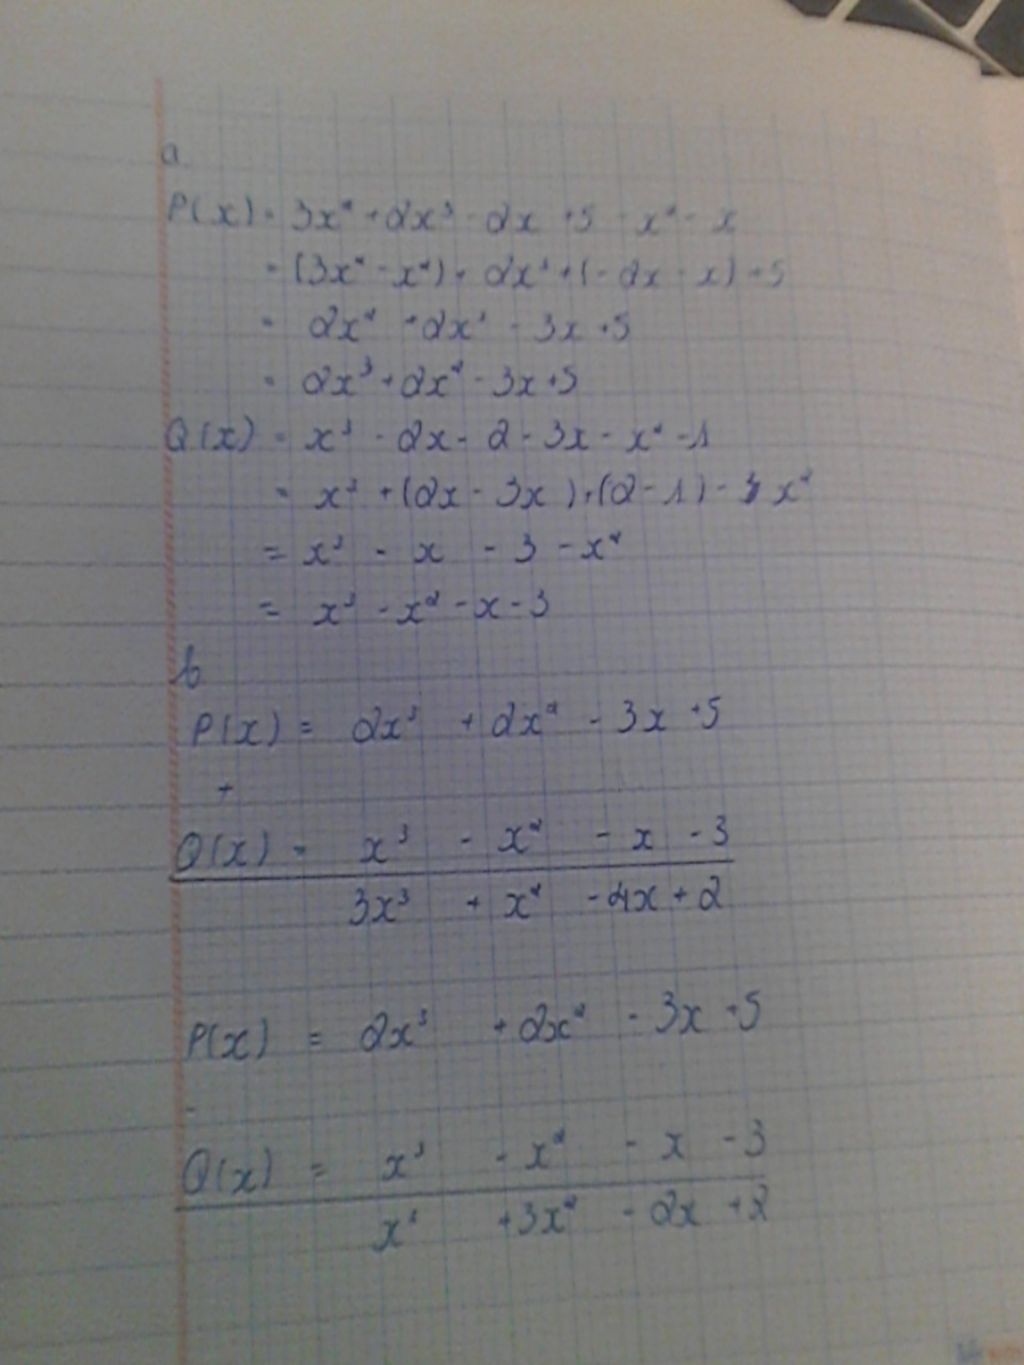 a
P(x) = 3x² + 2x³ - 2x + 5 - x² - x
= (3x² - x²) + 2x³ + (-2x - x) + 5
= 2x² + 2x³ - 3x + 5
= 2x³ + 2x² - 3x + 5
Q(x) = x³ - 2x - 2 - 3x - x² - 1
= x³ + (2x - 3x) + (2 - 1) - x²
= x³ - x - 3 - x²
= x³ - x² - x - 3
b
P(x) = 2x³ + 2x² - 3x + 5
+
Q(x) = x³ - x² - x - 3
3x³ + x² - 4x + 2
P(x) = 2x³ + 2x² - 3x + 5
-
Q(x) = x³ - x² - x - 3
x³ + 3x² - 2x + 2